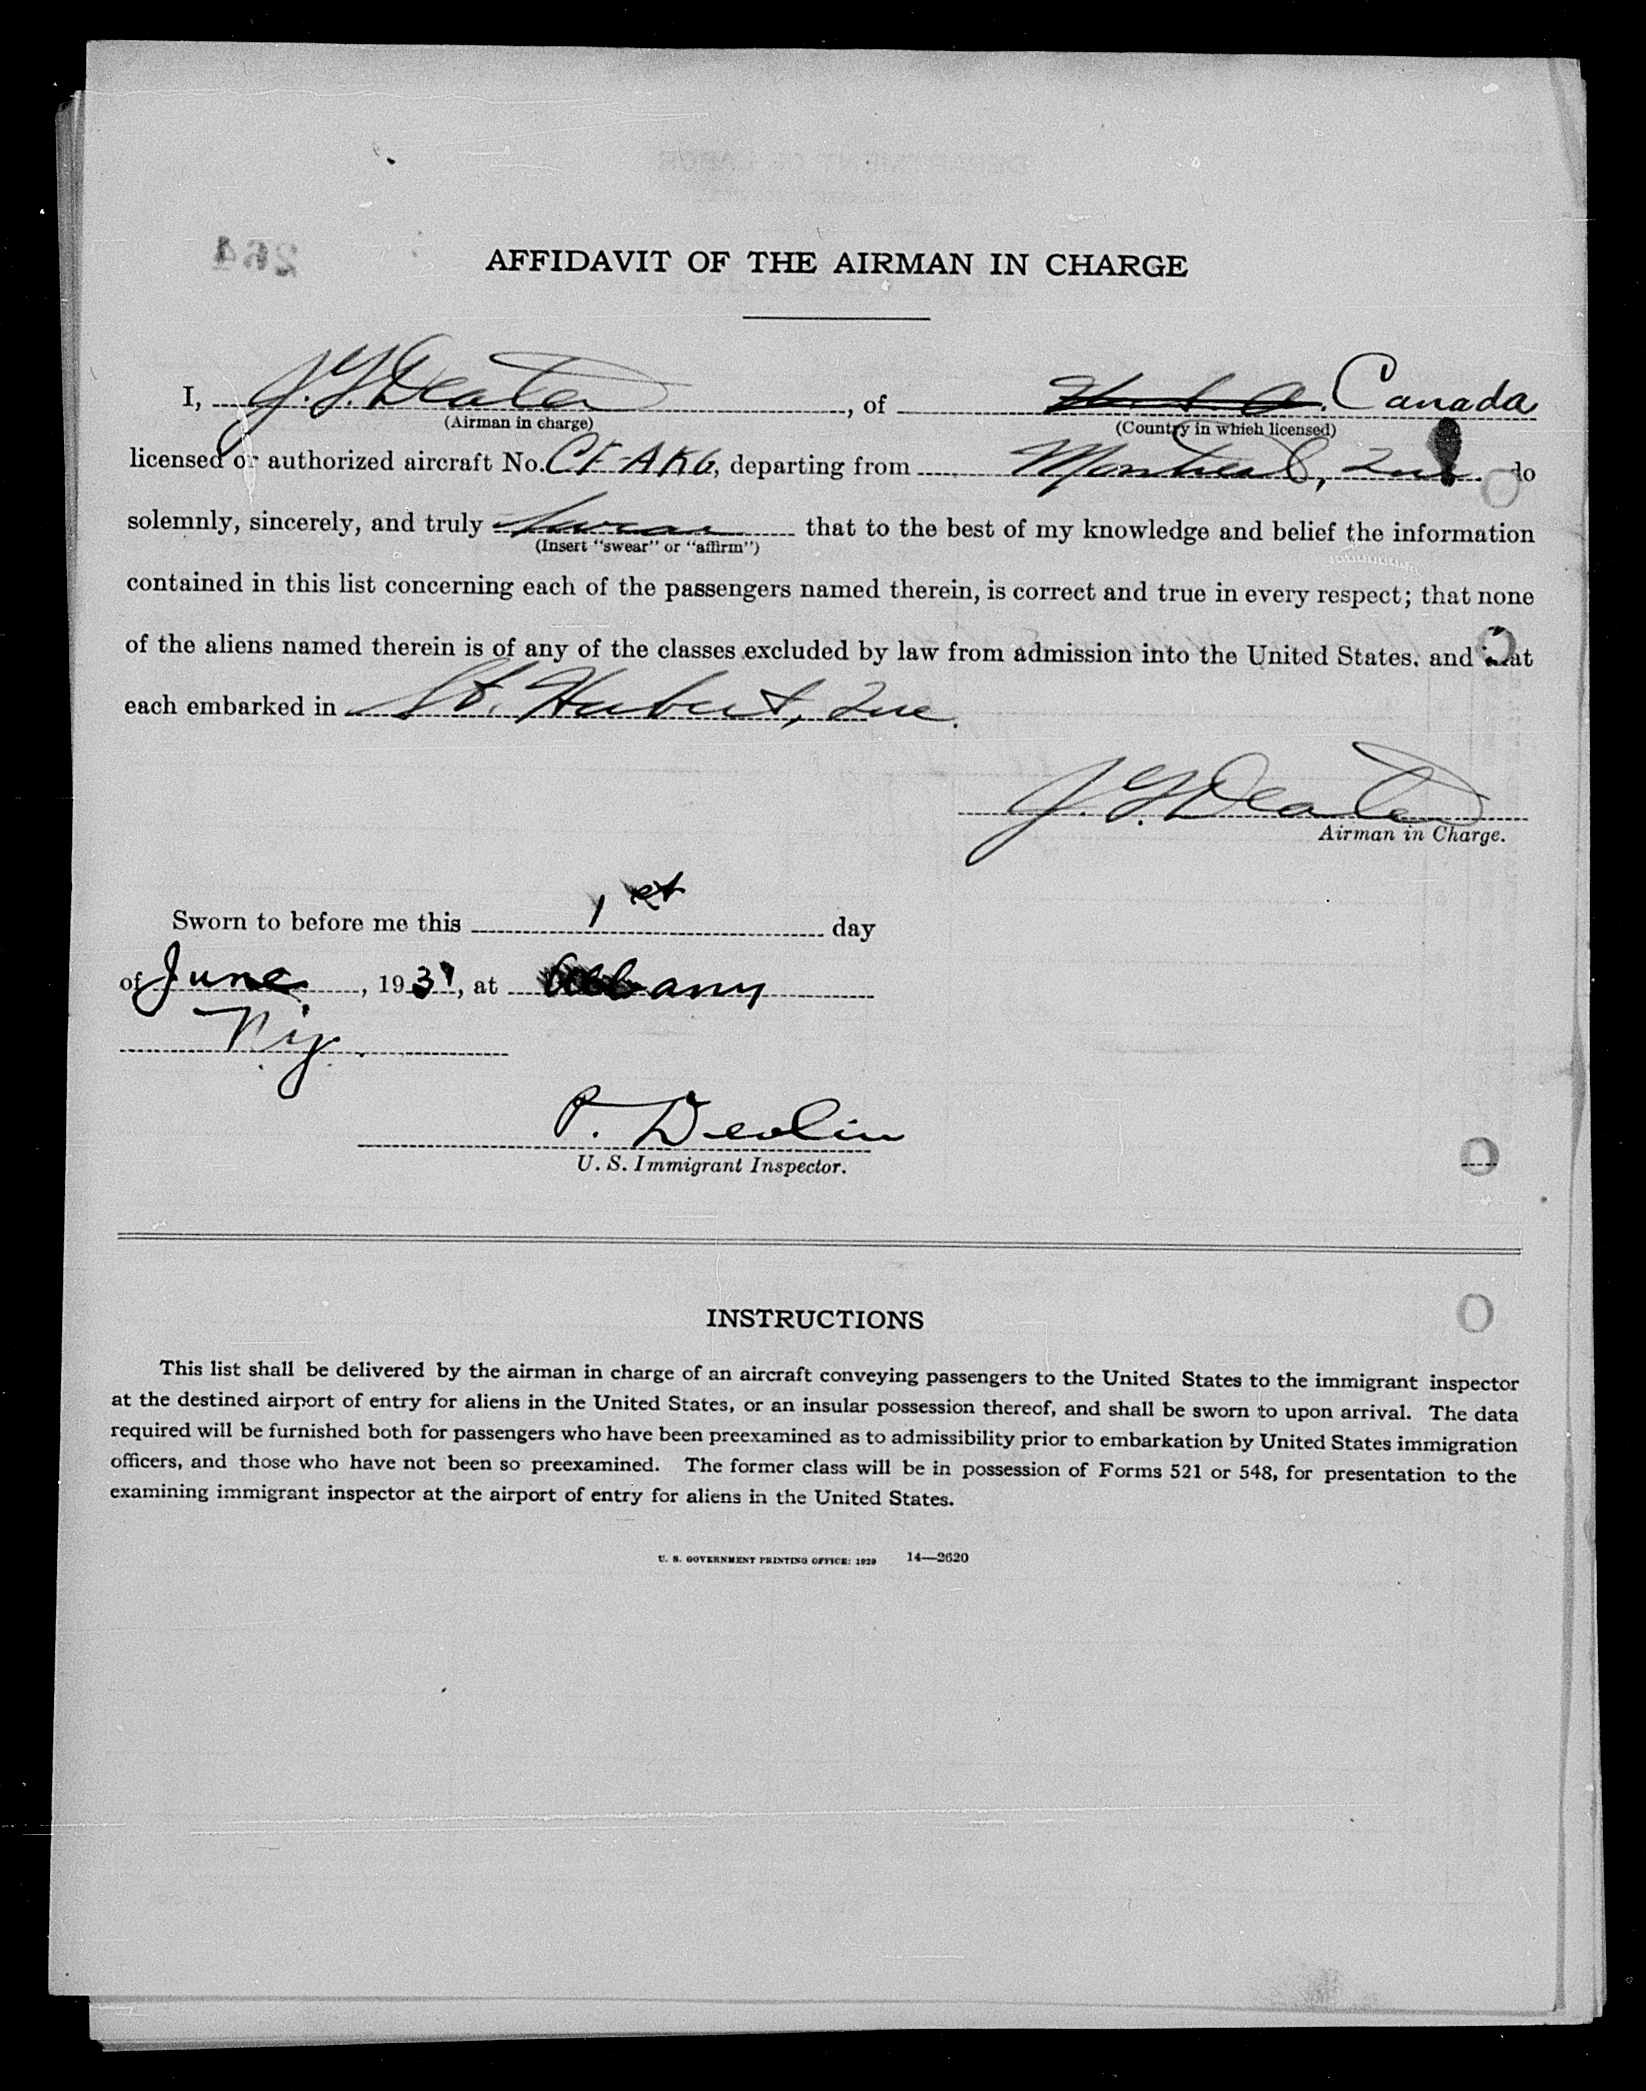 AFFIDAVIT OF THE AIRMAN IN CHARGE
I, J. Y. Deater, of U.S.A. Canada
(Airman in charge) (Country in which licensed)
licensed or authorized aircraft No. CF-AKG, departing from Montreal, Que. do
solemnly, sincerely, and truly swear that to the best of my knowledge and belief the information
(Insert "swear" or "affirm")
contained in this list concerning each of the passengers named therein, is correct and true in every respect; that none
of the aliens named therein is of any of the classes excluded by law from admission into the United States, and that
each embarked in St. Hubert, Que.
J. Y. Deater
Airman in Charge.
Sworn to before me this 1st day
of June, 1931, at Albany
N.Y.
P. Devlin
U. S. Immigrant Inspector.
INSTRUCTIONS
This list shall be delivered by the airman in charge of an aircraft conveying passengers to the United States to the immigrant inspector
at the destined airport of entry for aliens in the United States, or an insular possession thereof, and shall be sworn to upon arrival. The data
required will be furnished both for passengers who have been preexamined as to admissibility prior to embarkation by United States immigration
officers, and those who have not been so preexamined. The former class will be in possession of Forms 521 or 548, for presentation to the
examining immigrant inspector at the airport of entry for aliens in the United States.
U. S. GOVERNMENT PRINTING OFFICE: 1929 14—2620